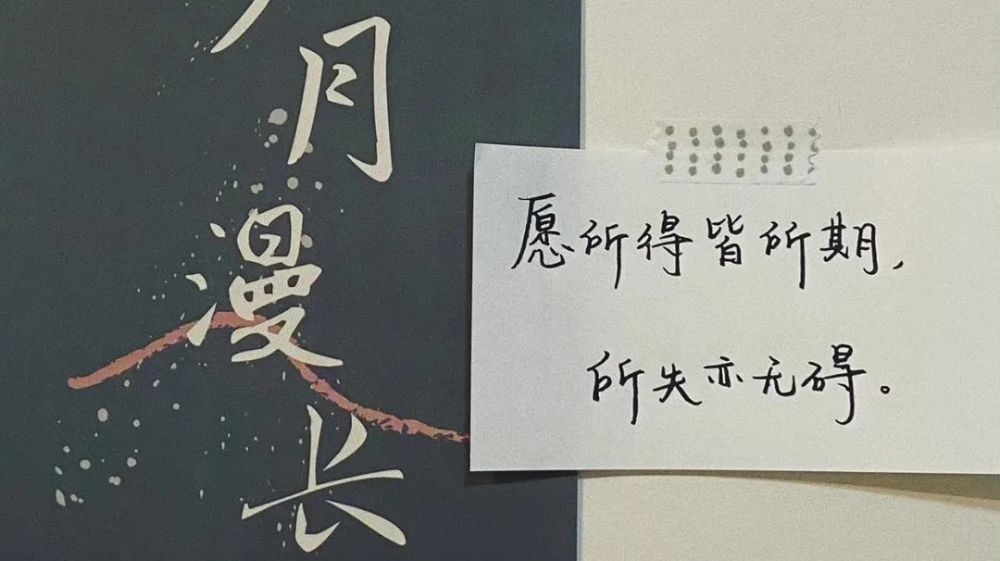 月漫长
愿所得皆所期，
所失亦无碍。